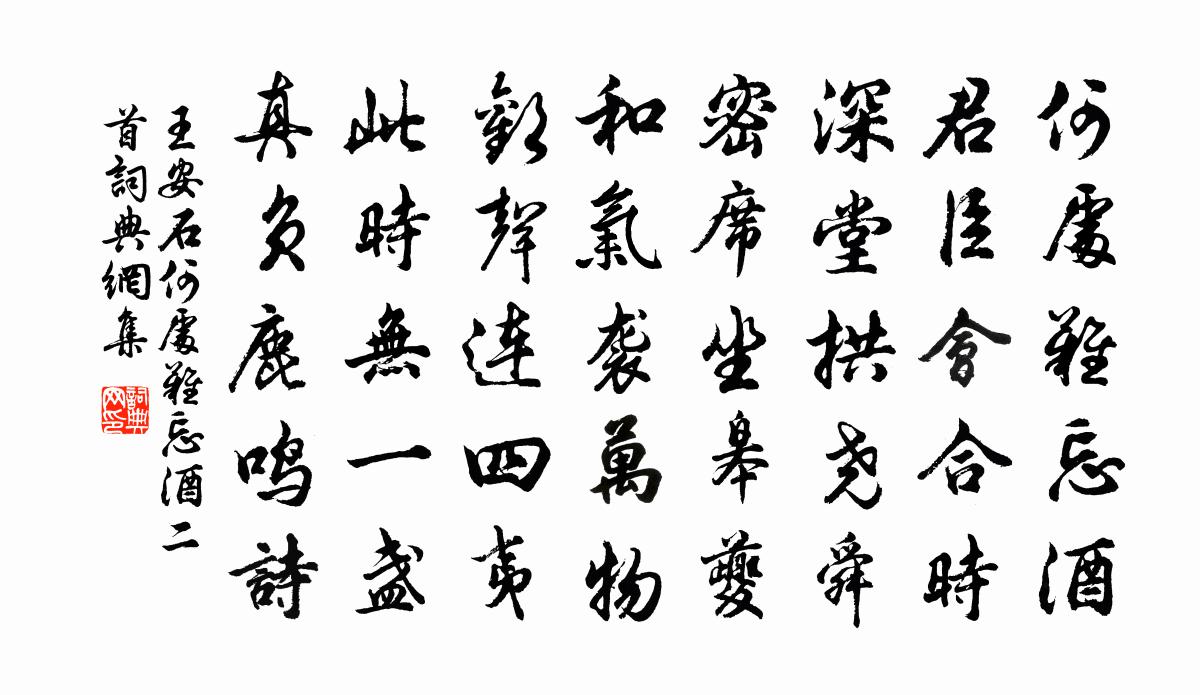 何處難忘酒
君臣會合時
深堂拱尧舜
密席坐皋夔
和氣袭萬物
歡聲連四夷
此時無一盏
真负鹿鸣詩
王安石何處難忘酒二
首詞典網集
詞典网印